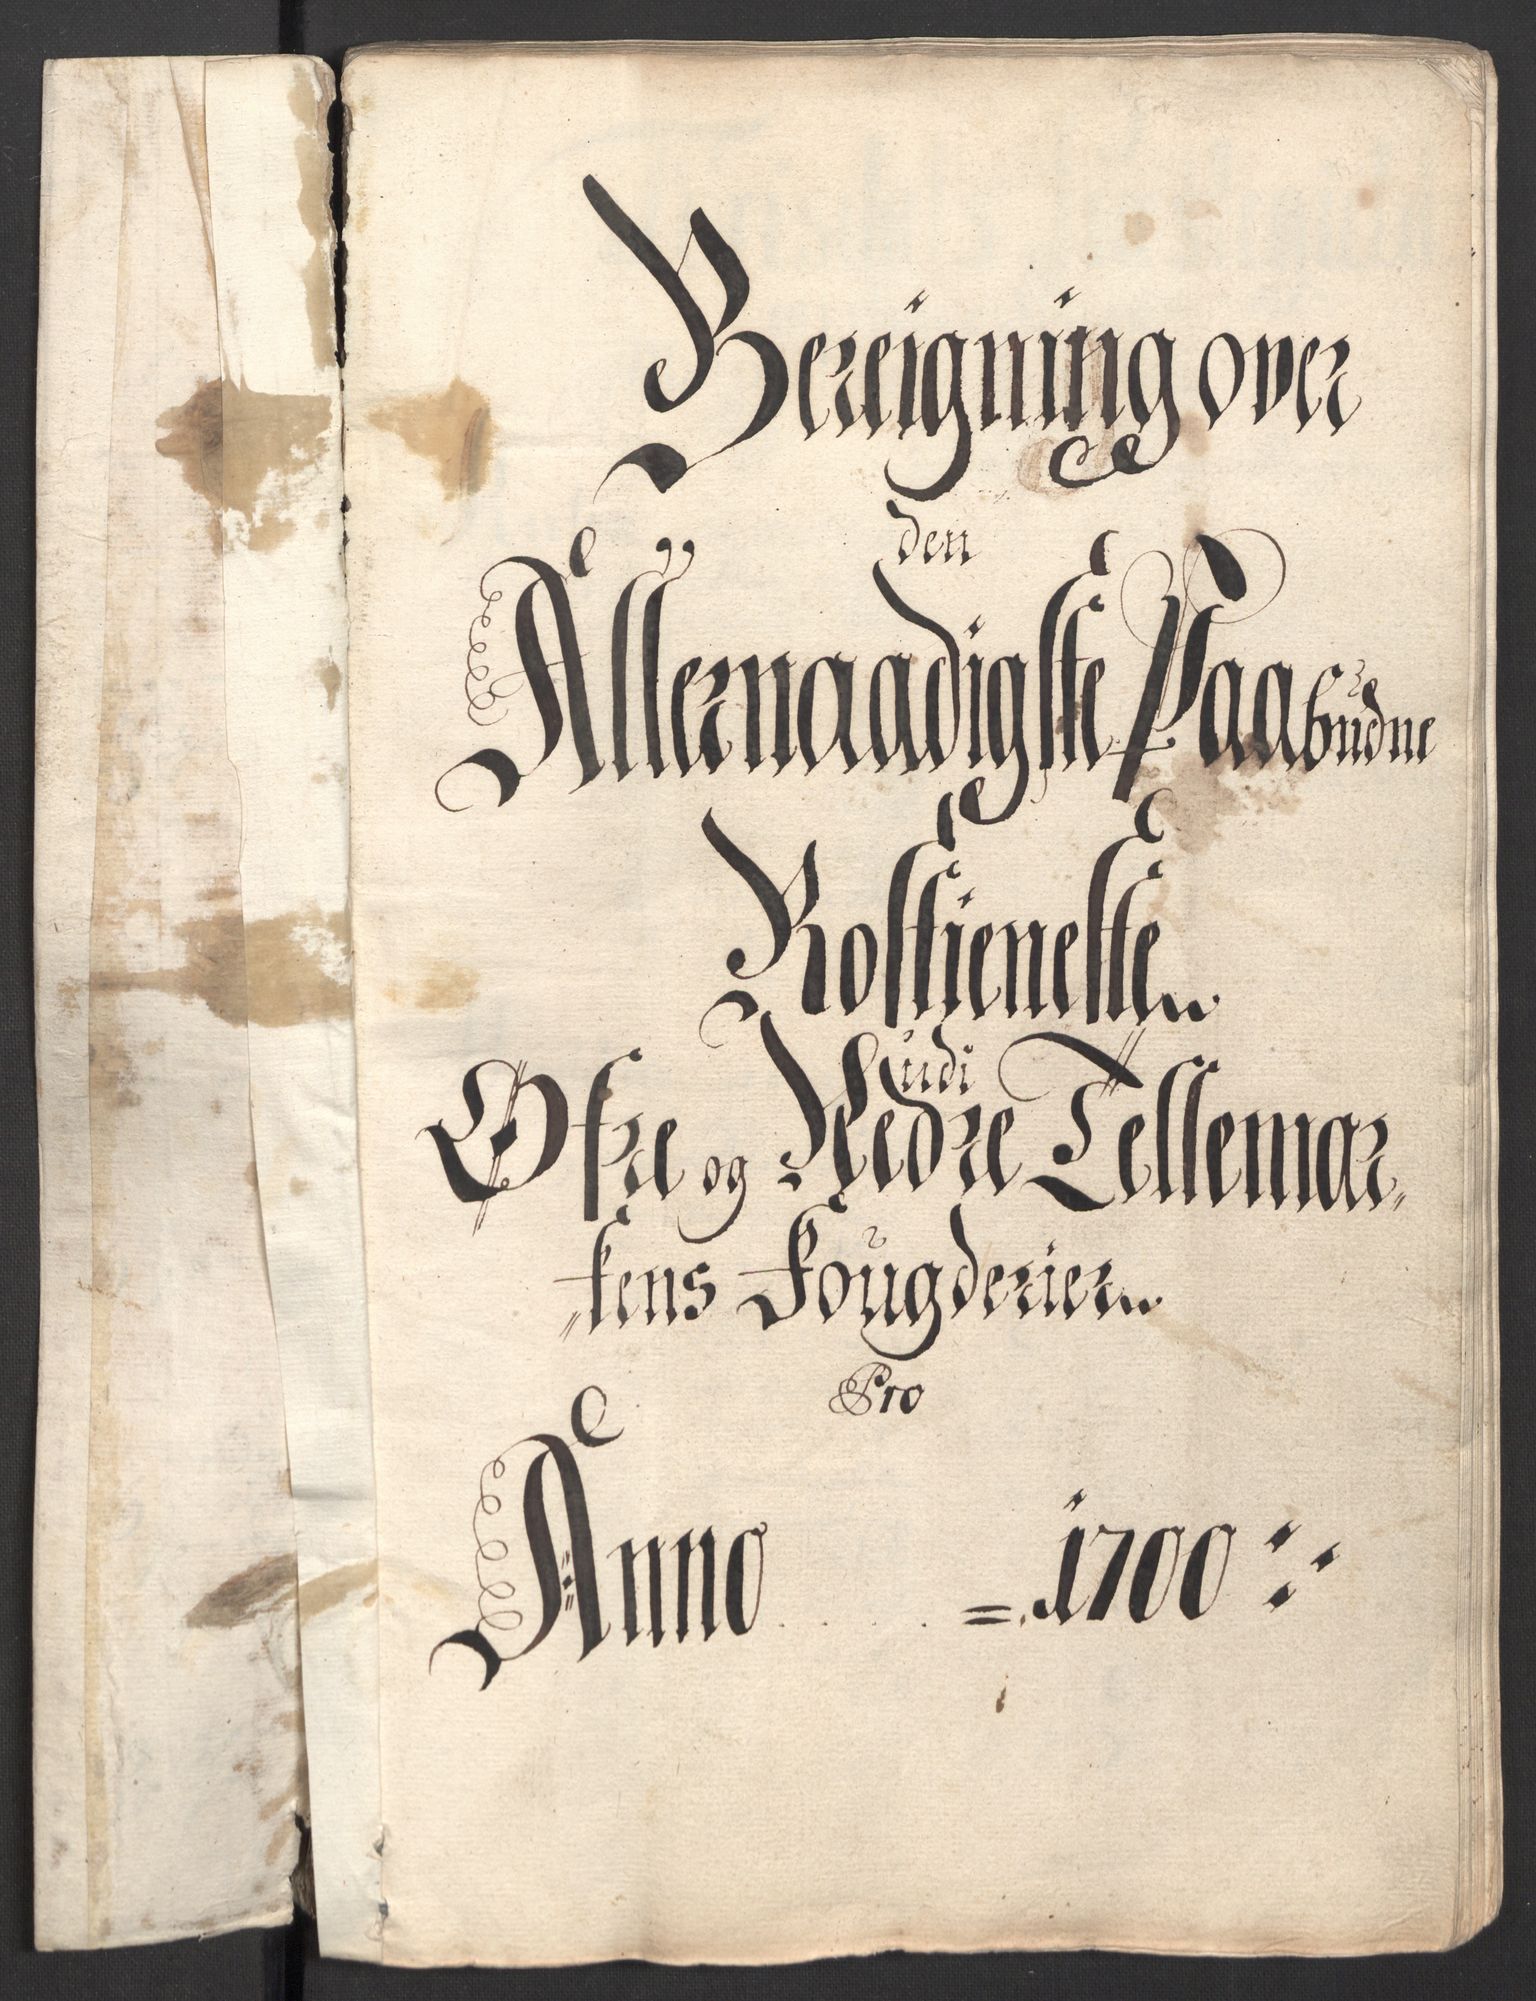 Bereigning over
den
Allernaadigste Paabudne
Rostienneste
udi
Øfre og Nedre Tellemar-
kens Fougderier
Pro
Anno = 1700